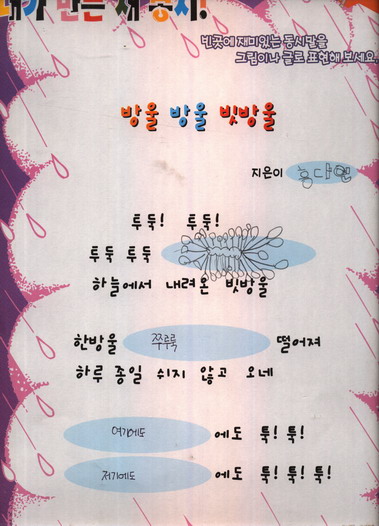 내가 만든 새 동시!
빈곳에 재미있는 동시말을
그림이나 글로 표현해 보세요.
방울 방울 빗방울
지은이 홍다현
투둑! 투둑!
투둑 투둑
하늘에서 내려온 빗방울
한방울 쭈루룩 떨어져
하루 종일 쉬지 않고 오네
여기에도 에도 툭! 툭!
저기에도 에도 툭! 툭! 툭!